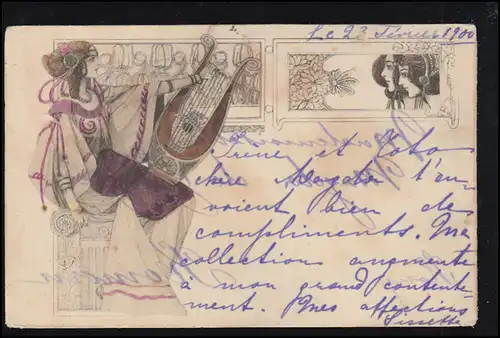 Le 23 Février 1900
Irène et Toto
chère Magda t'en
voient bien des
compliments. Ma
collection augmente
à mon grand contente
ment. Mes affections
Sissette